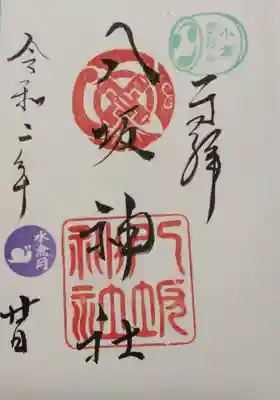 小倉
奉拝
八坂神社
八坂神社
令和二年
水無月
廿日